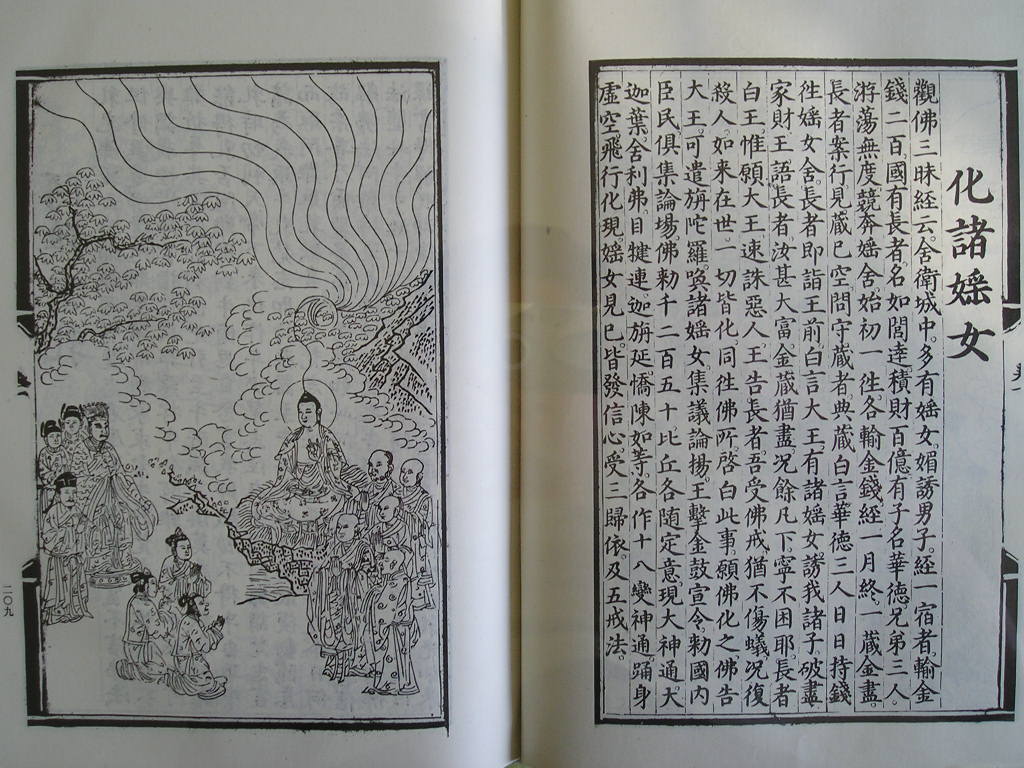 化諸婬女
觀佛三昧経云。舍衛城中。多有婬女。媚誘男子。経一宿者。輸金
錢二百國有長者。名如閭逹積財百億。有子名華德兄弟三人。
游蕩無度。競奔婬舍。始初一徃。各輸金錢。経一月終。一藏金盡。
長者案行。見藏已空。問守藏者。典藏白言華德三人。日日持錢
徃婬女舍。長者即詣王前。白言大王。有諸婬女。誘我諸子。破盡
家財。王語長者。汝甚大富。金藏猶盡。况餘凡下。寧不困耶。長者
白王。惟願大王。速誅惡人。王告長者。吾受佛戒。猶不傷蟻。况復
殺人。如来在世。一切皆化。同徃佛所。啓白此事。願佛化之。佛告
大王。可遣旃陀羅。喚諸婬女。集議論揚。王擊金鼓宣令。勅國内
臣民。俱集論場。佛勅千二百五十比丘。各隨定意。現大神通大
迦葉。舍利弗。目犍連。迦旃延。憍陳如等。各作十八變神通。踊身
虛空。飛行化現。婬女見已。皆發信心。受三歸依。及五戒法。
二〇九